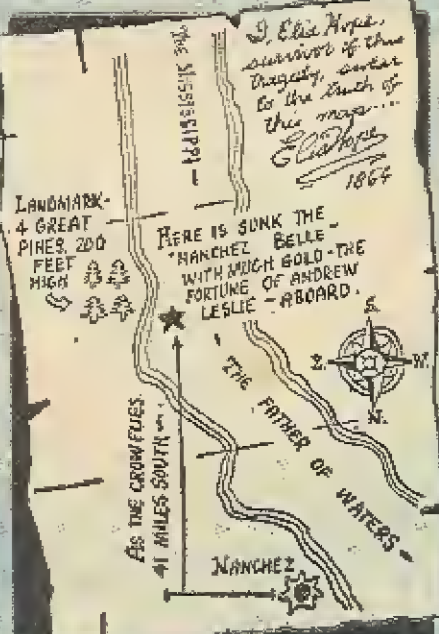 I, Elia Hope,
survivor of this
tragedy, swear
to the truth of
this map...
Elia Hope
1864
THE MISSISSIPPI -
LANDMARK-
4 GREAT
PINES, 200
FEET
HIGH
HERE IS SUNK THE
"NANCHEZ BELLE -
WITH MUCH GOLD - THE
FORTUNE OF ANDREW
LESLIE - ABOARD.
S.
E. W.
N.
THE FATHER OF WATERS -
AS THE CROW FLIES.
41 MILES SOUTH -
NANCHEZ